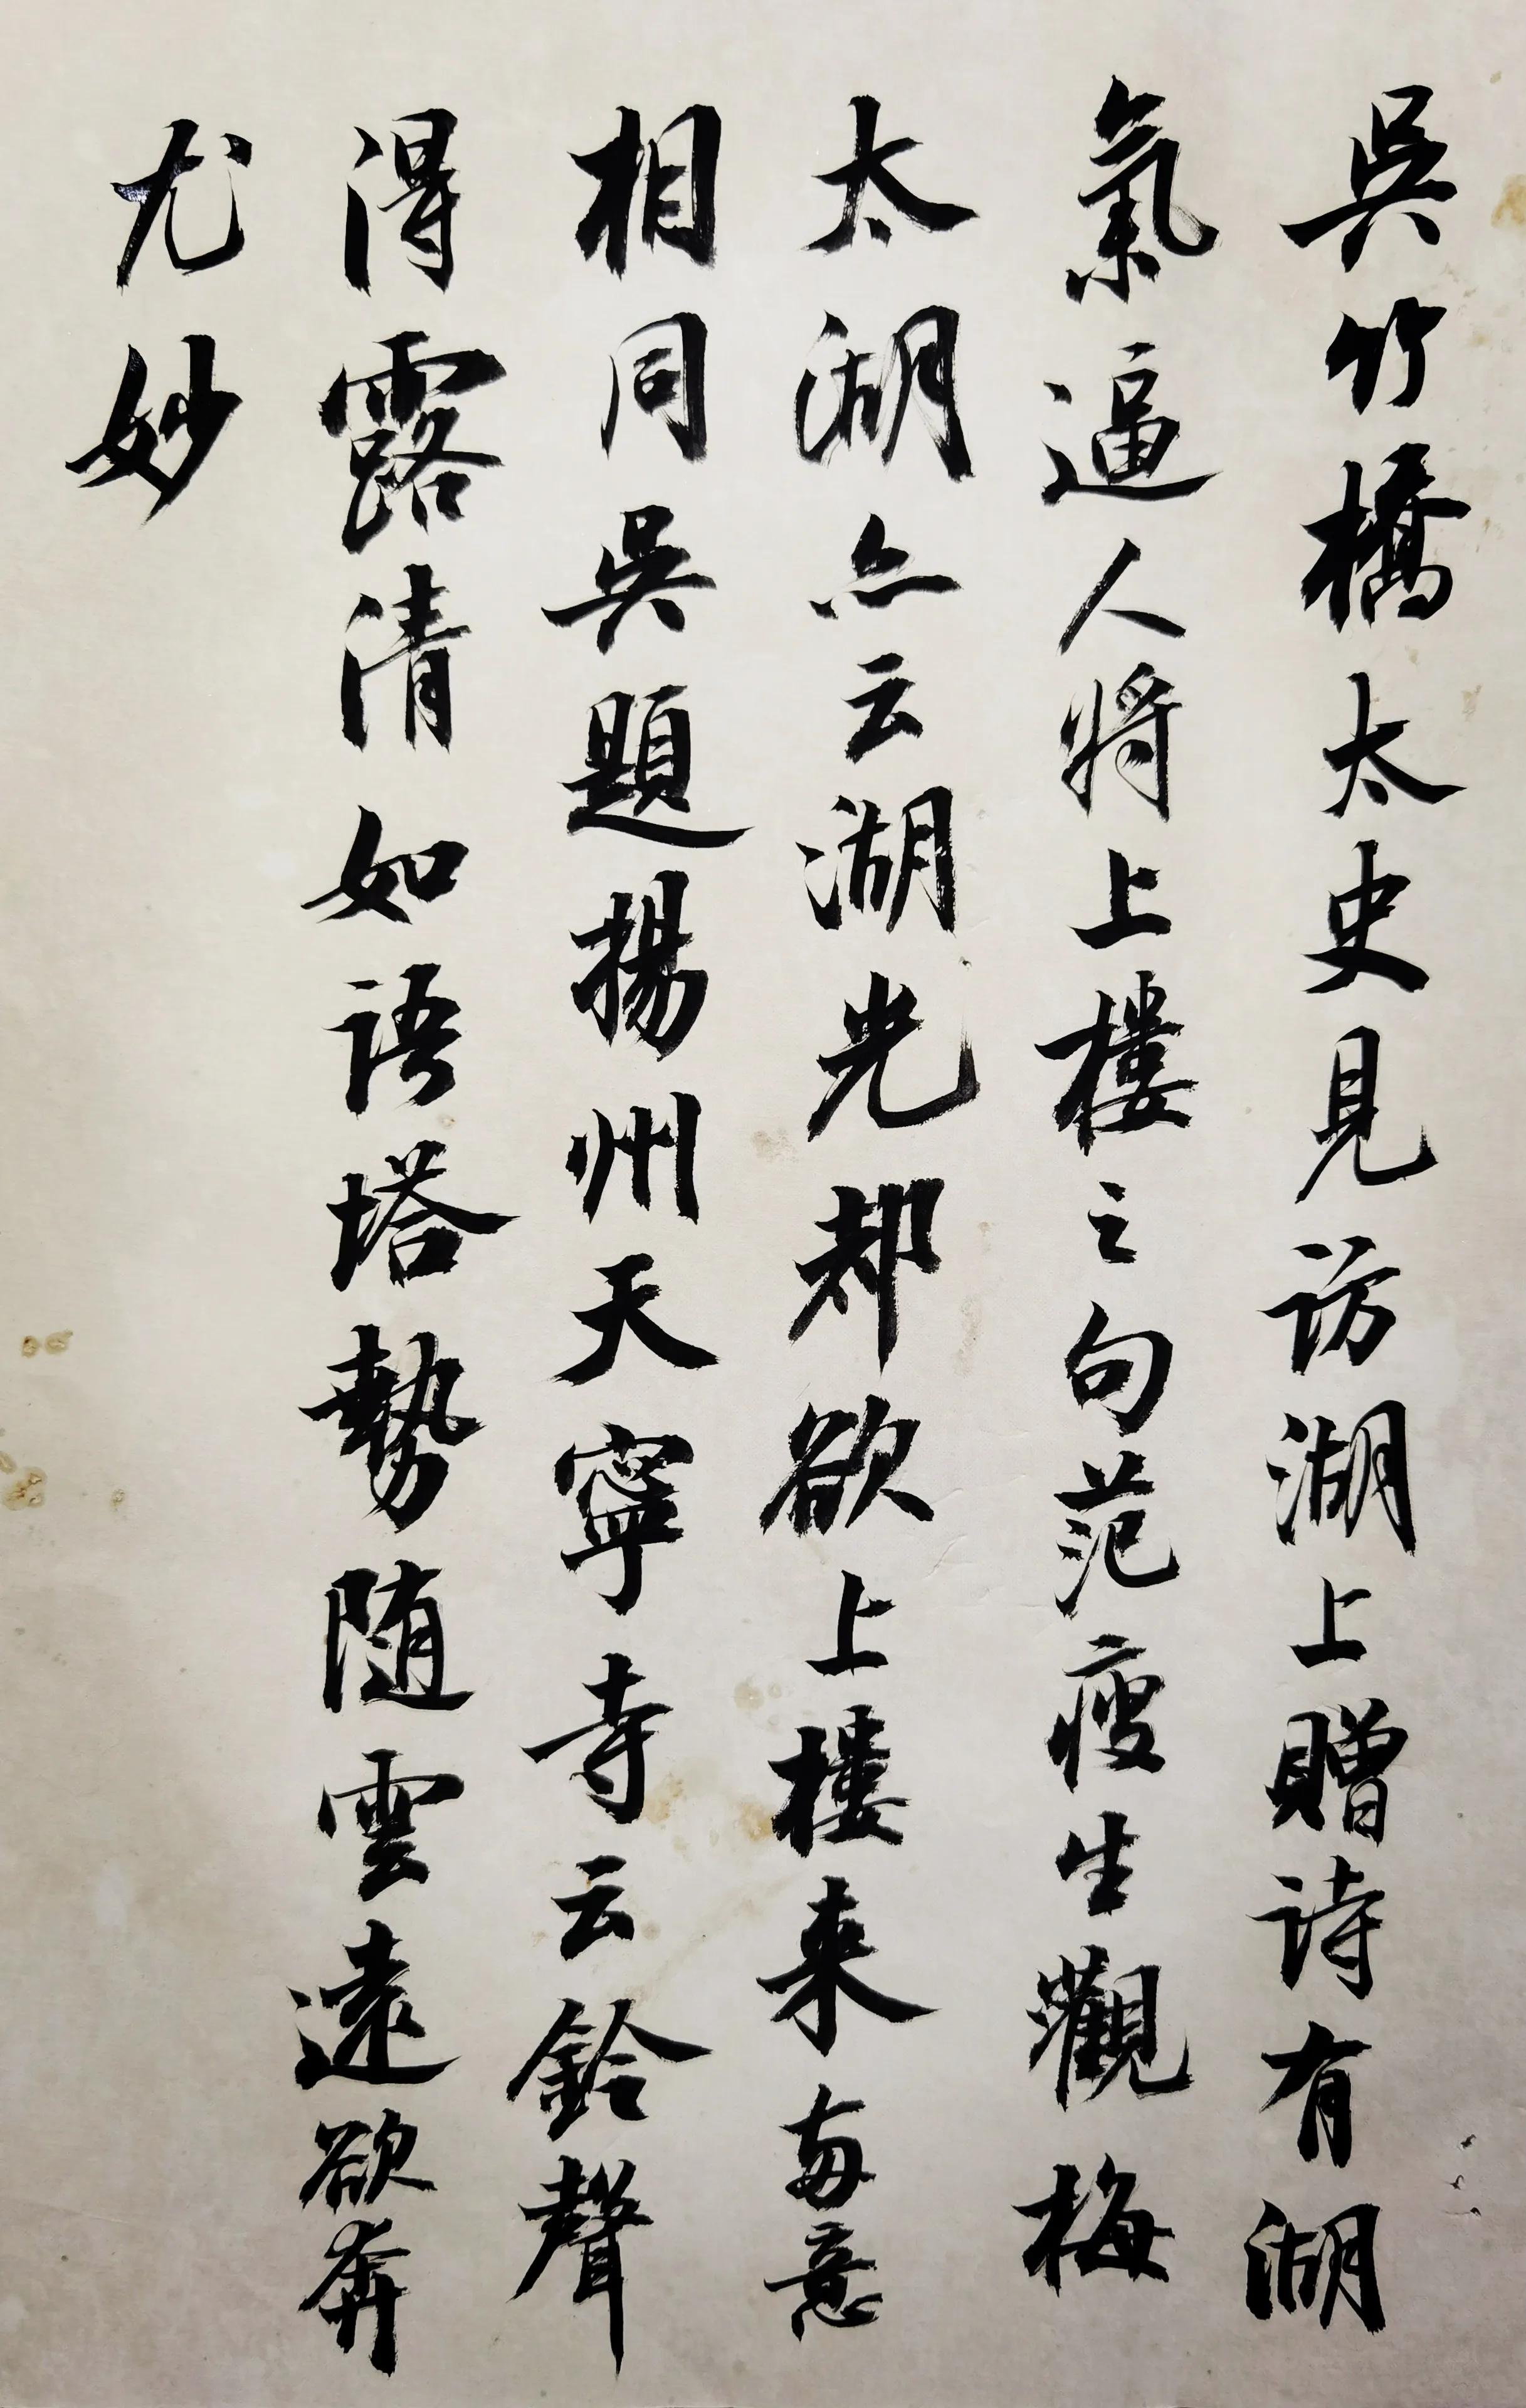 吳竹橋太史見訪湖上贈诗有湖
氣逼人将上樓之句范瘦生觀梅
太湖亦云湖光却欲上樓来两意
相同吳題揚州天寧寺云鈴聲
得露清如语塔勢随雲遠欲奔
尤妙